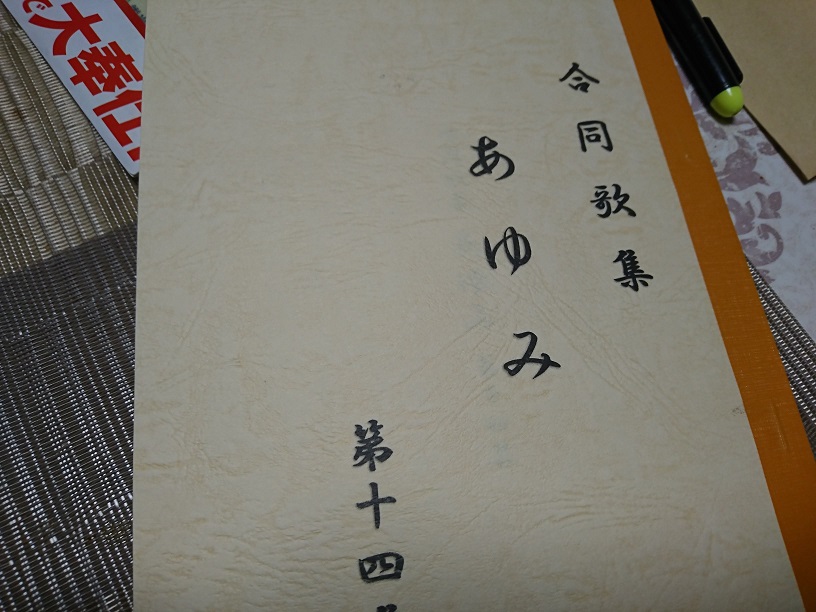 合同歌集
あゆみ
第十四
で大奉仕